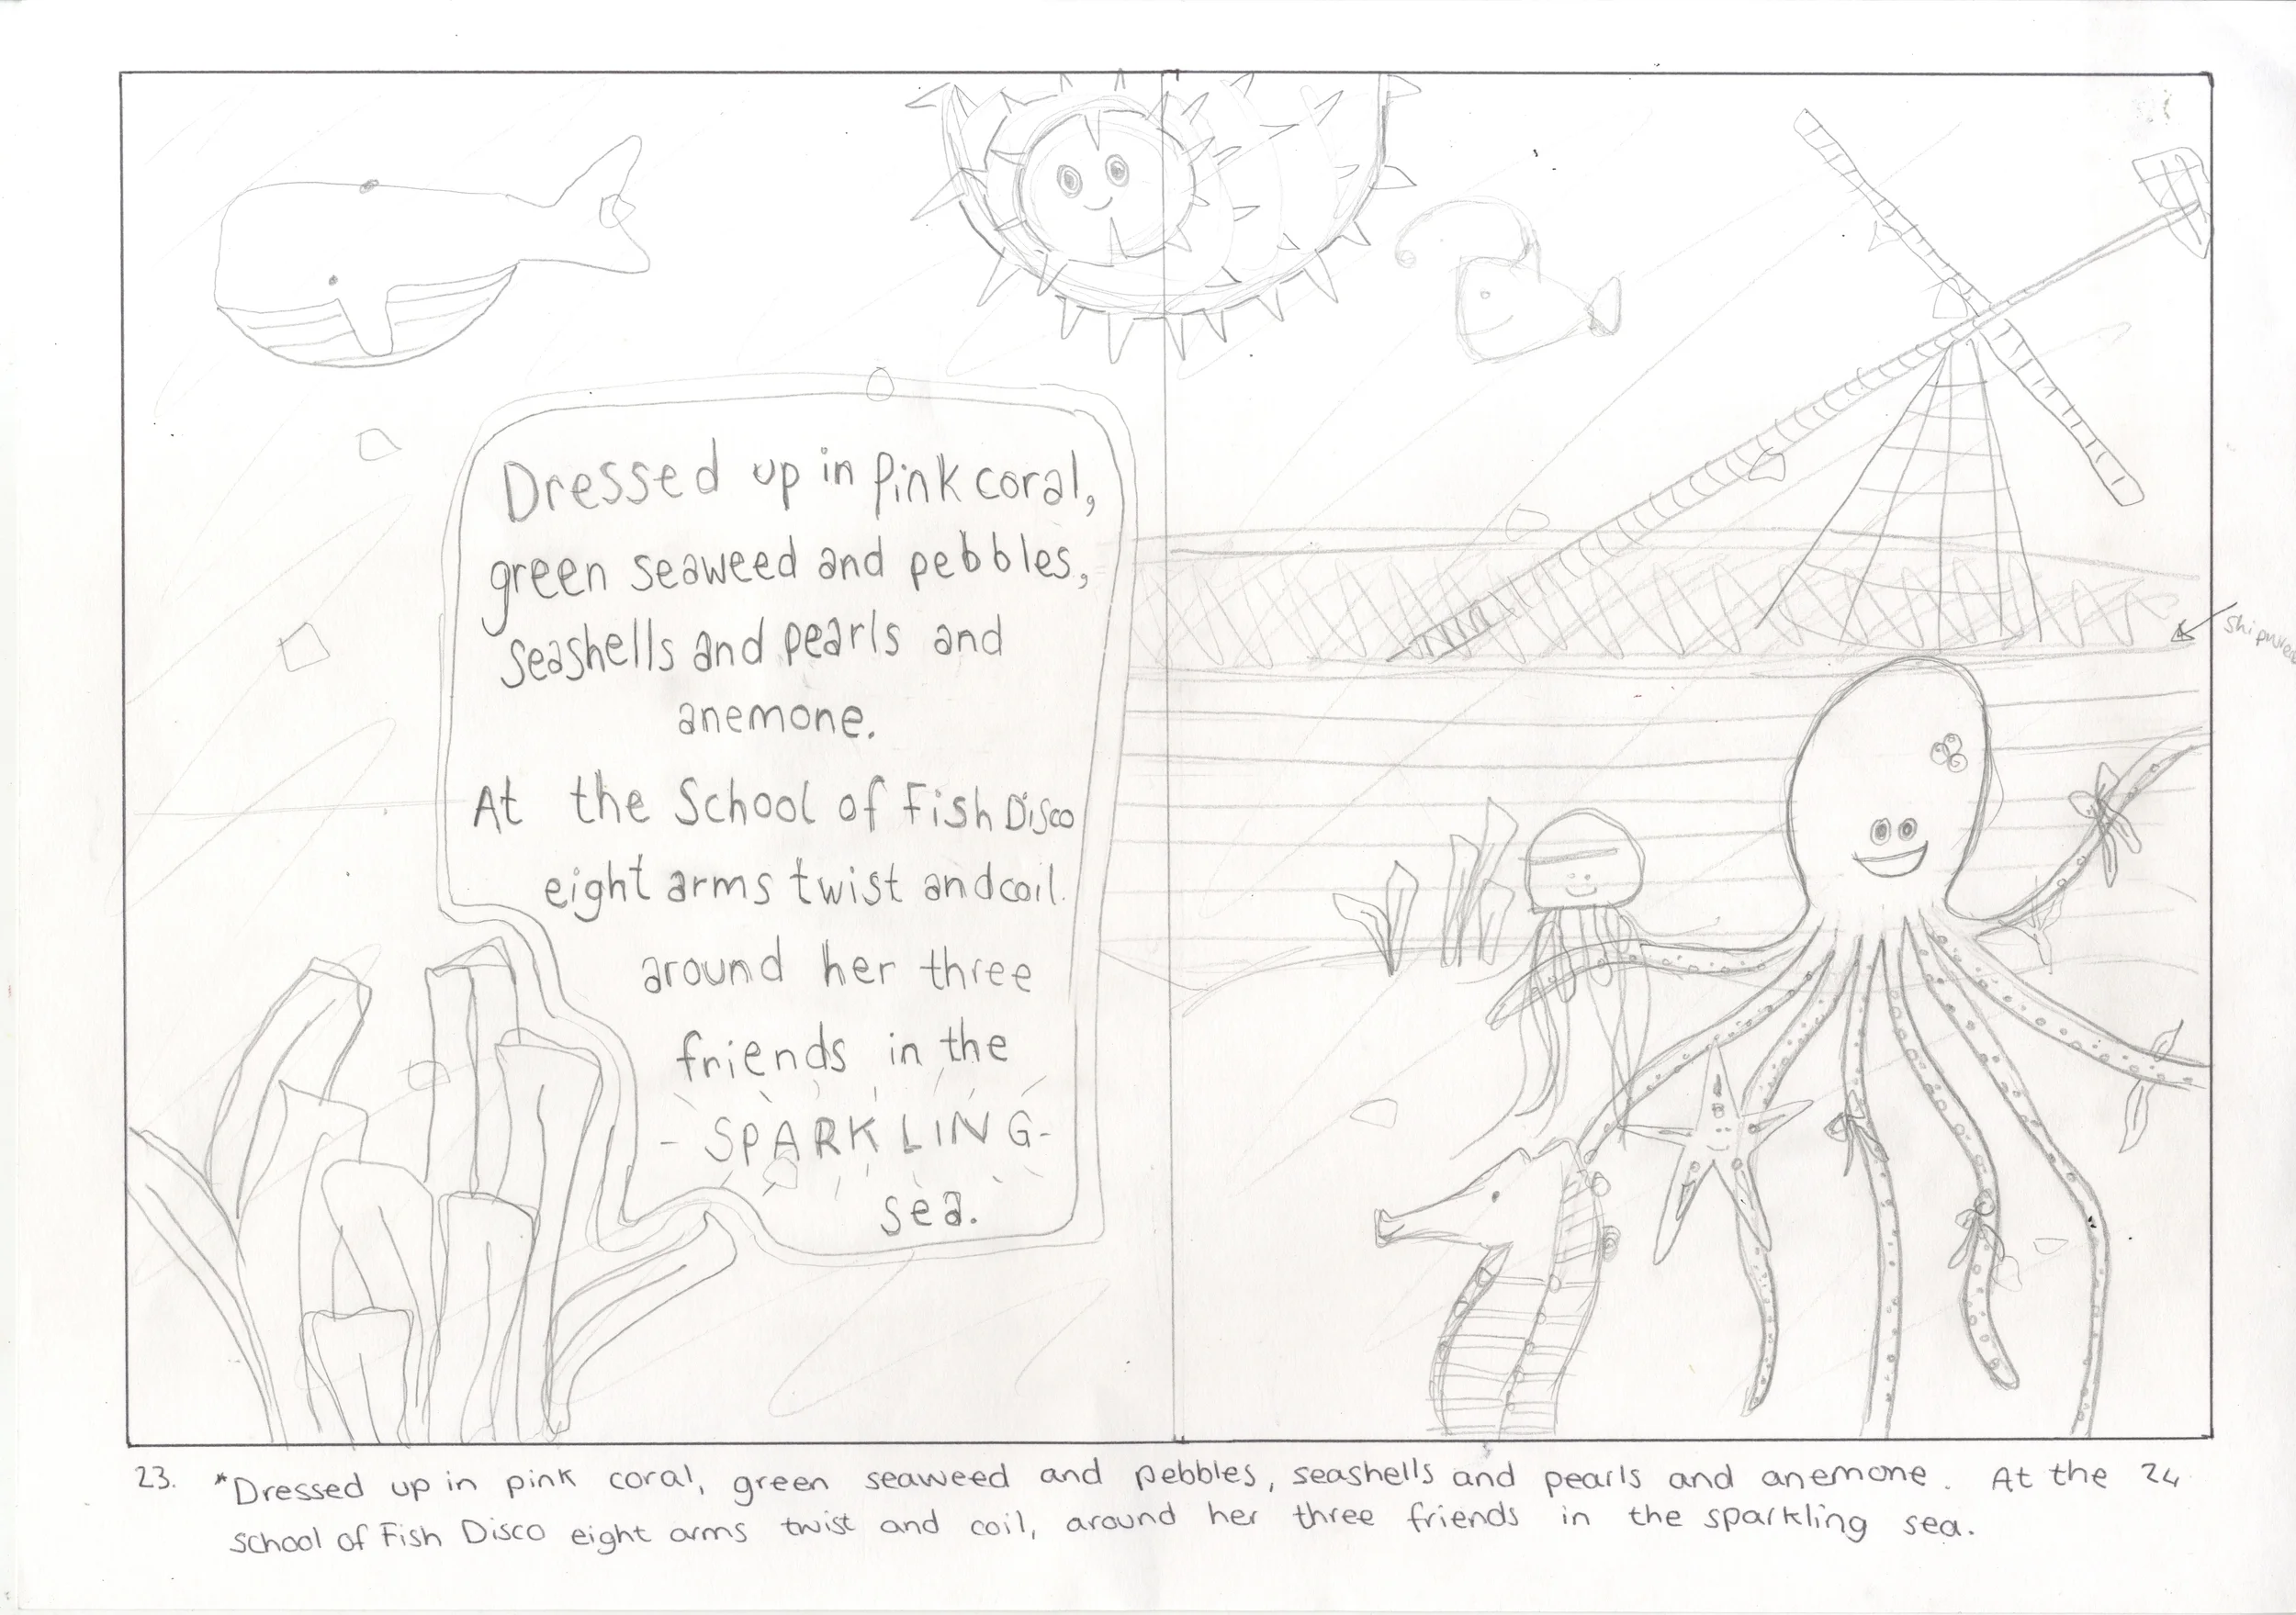 Dressed up in pink coral,
green seaweed and pebbles,
seashells and pearls and
anemone.
At the School of Fish Disco
eight arms twist and coil.
around her three
friends in the
- SPARKLING -
sea.
23. *Dressed up in pink coral, green seaweed and pebbles, seashells and pearls and anemone. At the 24
School of Fish Disco eight arms twist and coil, around her three friends in the sparkling sea.